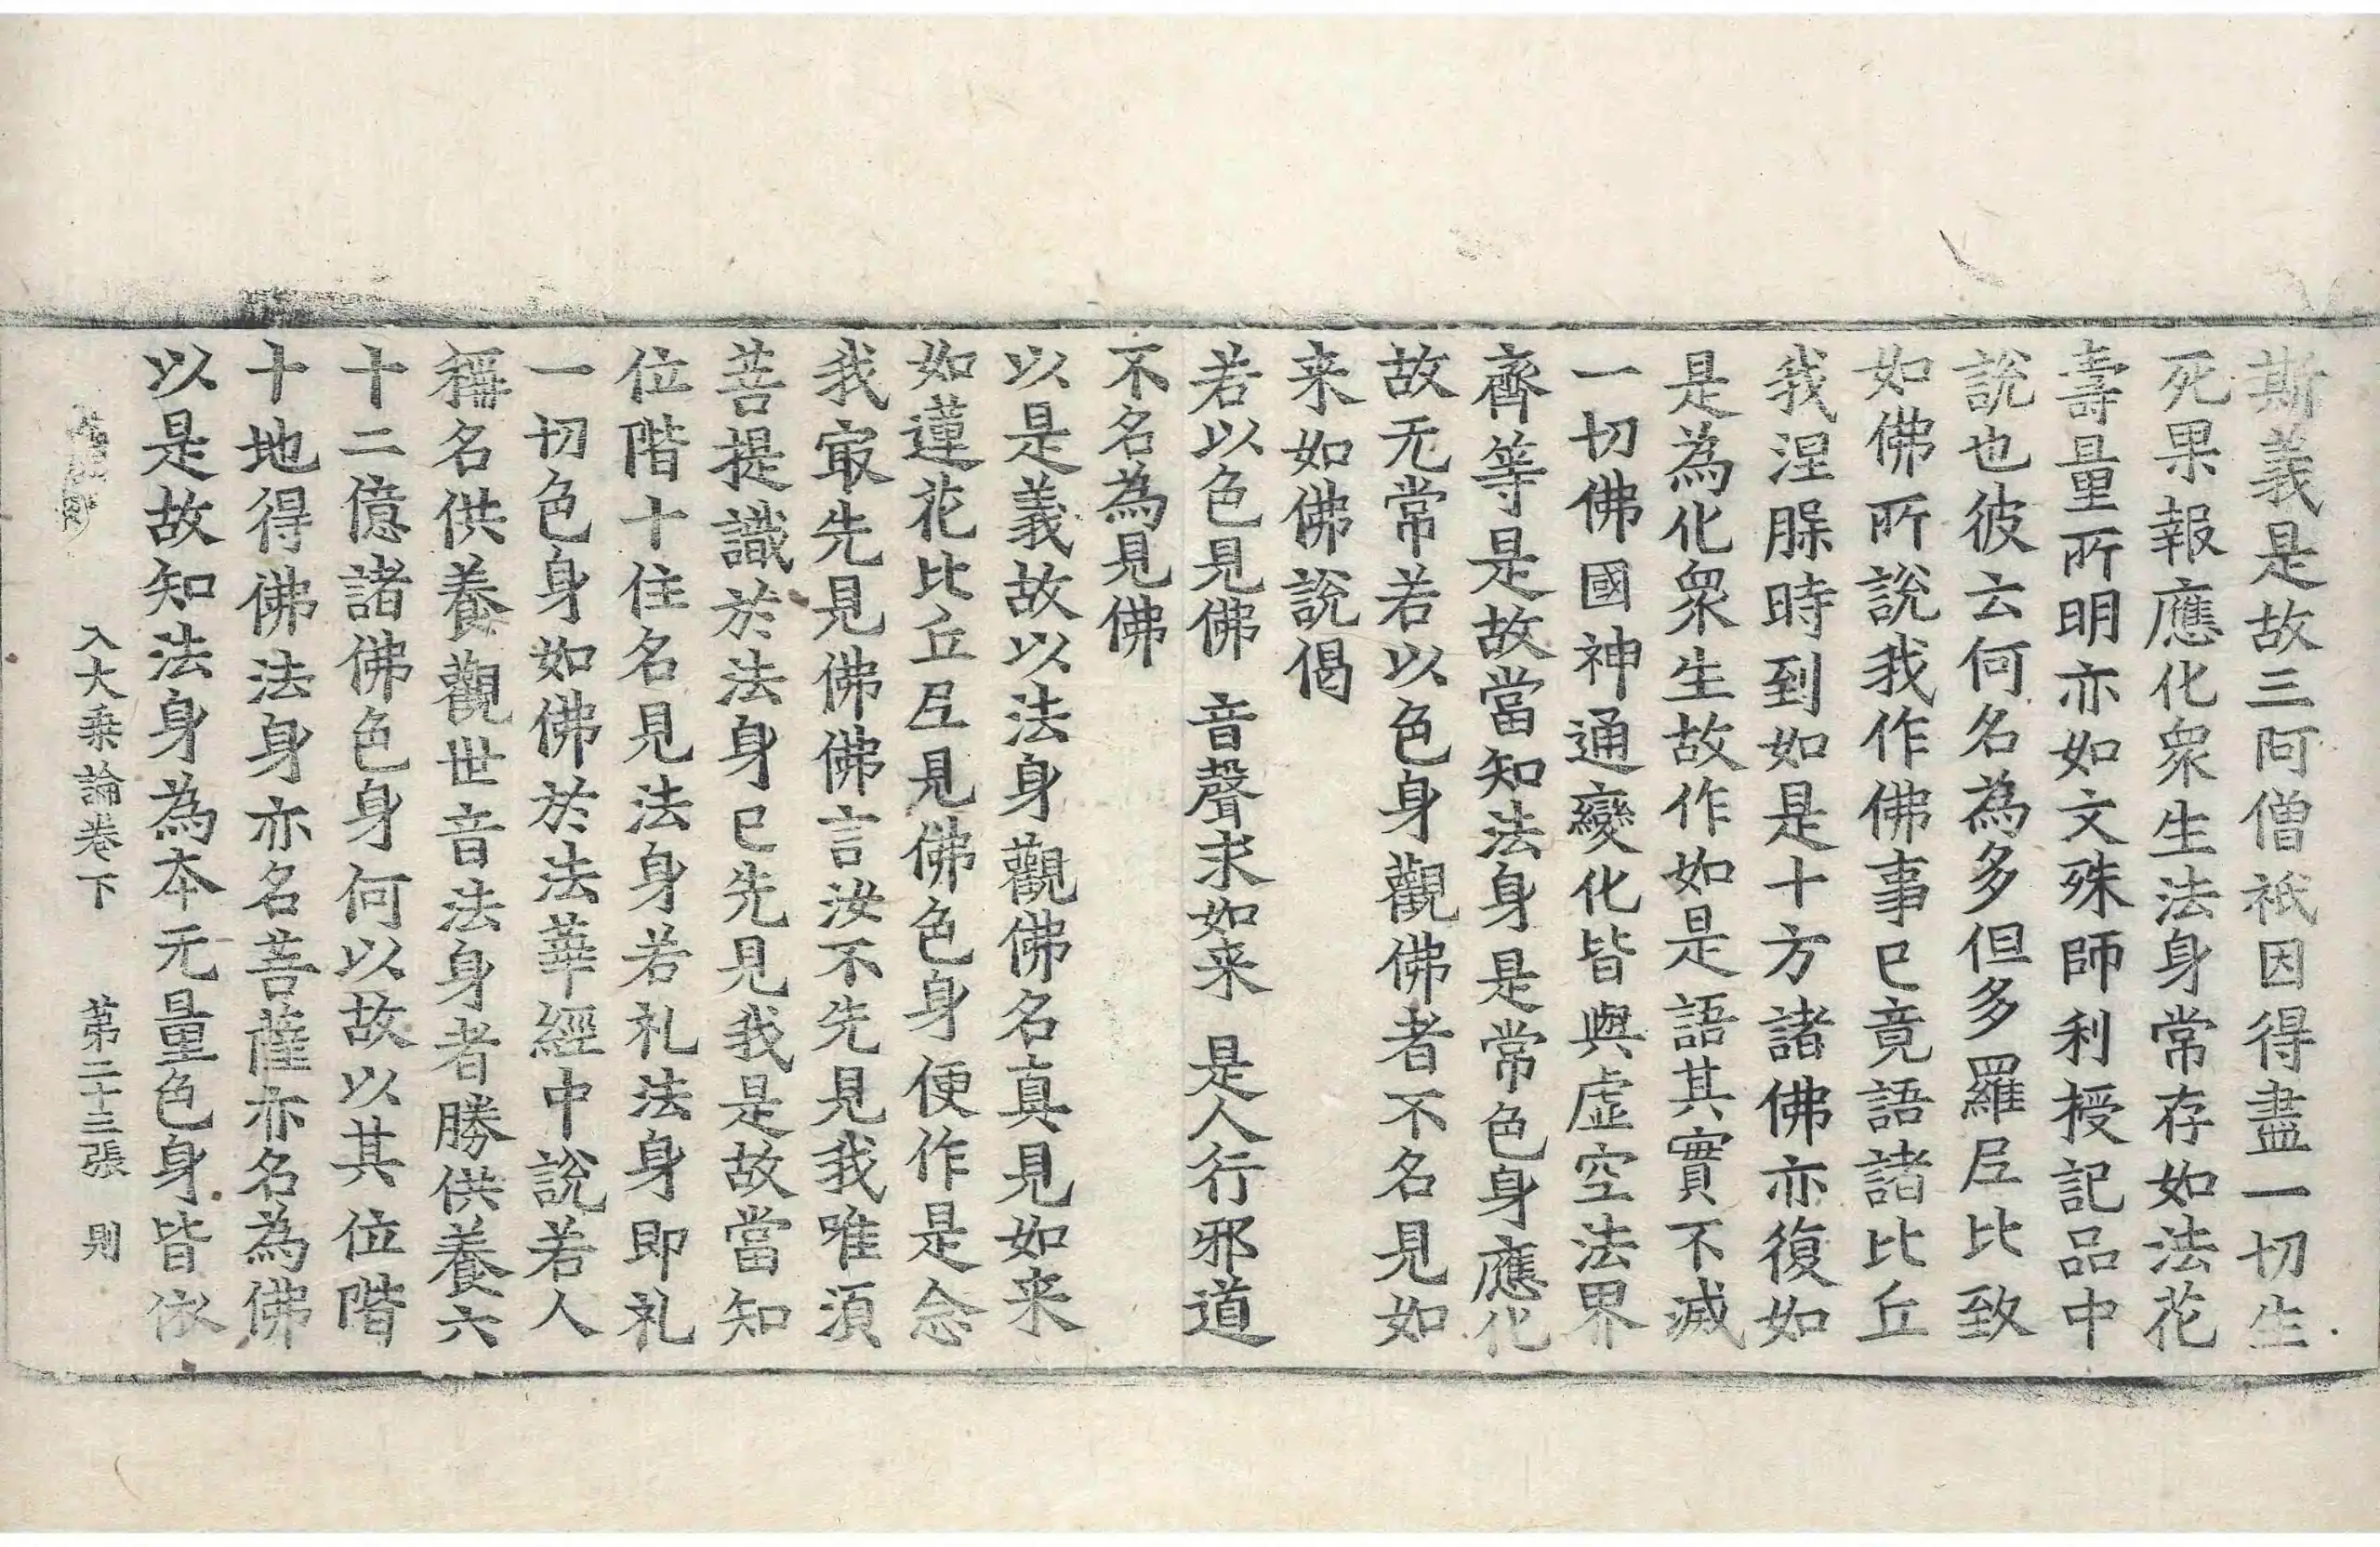 斯義是故三阿僧祇因得盡一切生
死果報應化衆生法身常存如法花
壽量所明亦如文殊師利授記品中
說也彼云何名為多但多羅𡰱比致
如佛所說我作佛事已竟語諸比丘
我涅脲時到如是十方諸佛亦復如
是為化衆生故作如是語其實不滅
一切佛國神通變化皆與虛空法界
齊等是故當知法身是常色身應化
故无常若以色身觀佛者不名見如
来如佛說偈
若以色見佛　音聲求如来　是人行邪道
不名為見佛
以是義故以法身觀佛名真見如来
如蓮花比丘𡰱見佛色身便作是念
我㝡先見佛佛言汝不先見我唯湏
菩提識於法身已先見我是故當知
位階十住名見法身若礼法身即礼
一切色身如佛於法華經中說若人
稱名供養觀世音法身者勝供養六
十二億諸佛色身何以故以其位階
十地得佛法身亦名菩薩亦名為佛
以是故知法身為本无量色身皆依
入大乗論卷下　第二十三張　則